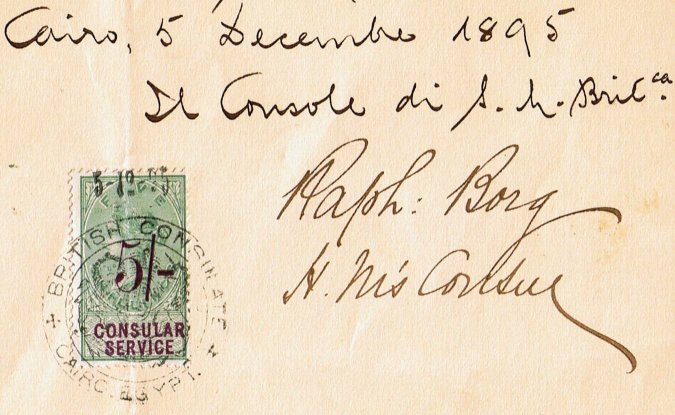 Cairo, 5 Decembre 1895
Il Console di S. M. Britca.
Raph: Borg
H. M's Consul
5 12 95
FIVE
5/-
CONSULAR
SERVICE
BRITISH CONSULATE
CAIRO. EGYPT.